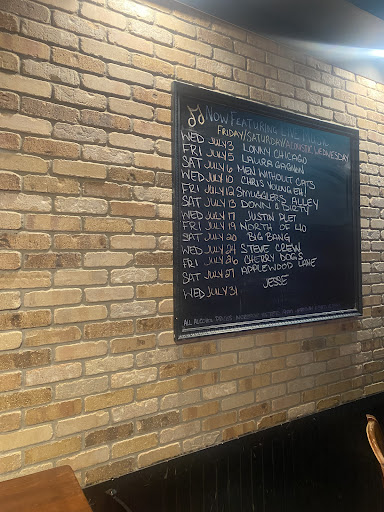 NOW FEATURING LIVE MUSIC
FRIDAY/SATURDAY/ACOUSTIC WEDNESDAY
WED JULY 3 LONNY CHICAGO
FRI JULY 5 LAURA GAGNON
SAT JULY 6 MEN WITHOUT CATS
WED JULY 10 CHRIS YOUNG EH
FRI JULY 12 SMUGGLERS ALLEY
SAT JULY 13 DOWN & DIRTY
WED JULY 17 JUSTIN PLET
FRI JULY 19 NORTH OF 40
SAT JULY 20 BIG BANG
WED JULY 24 STEVE CREW
FRI JULY 26 CHERRY DOGS
SAT JULY 27 APPLEWOOD LANE
JESSE
WED JULY 31
ALL ALCOHOL